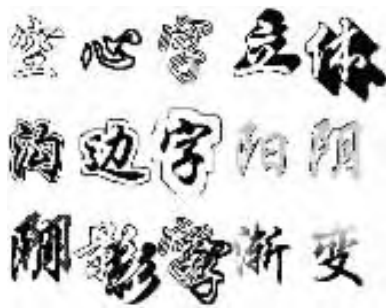 空心字立体
沟边字阳阴
阴影字渐变